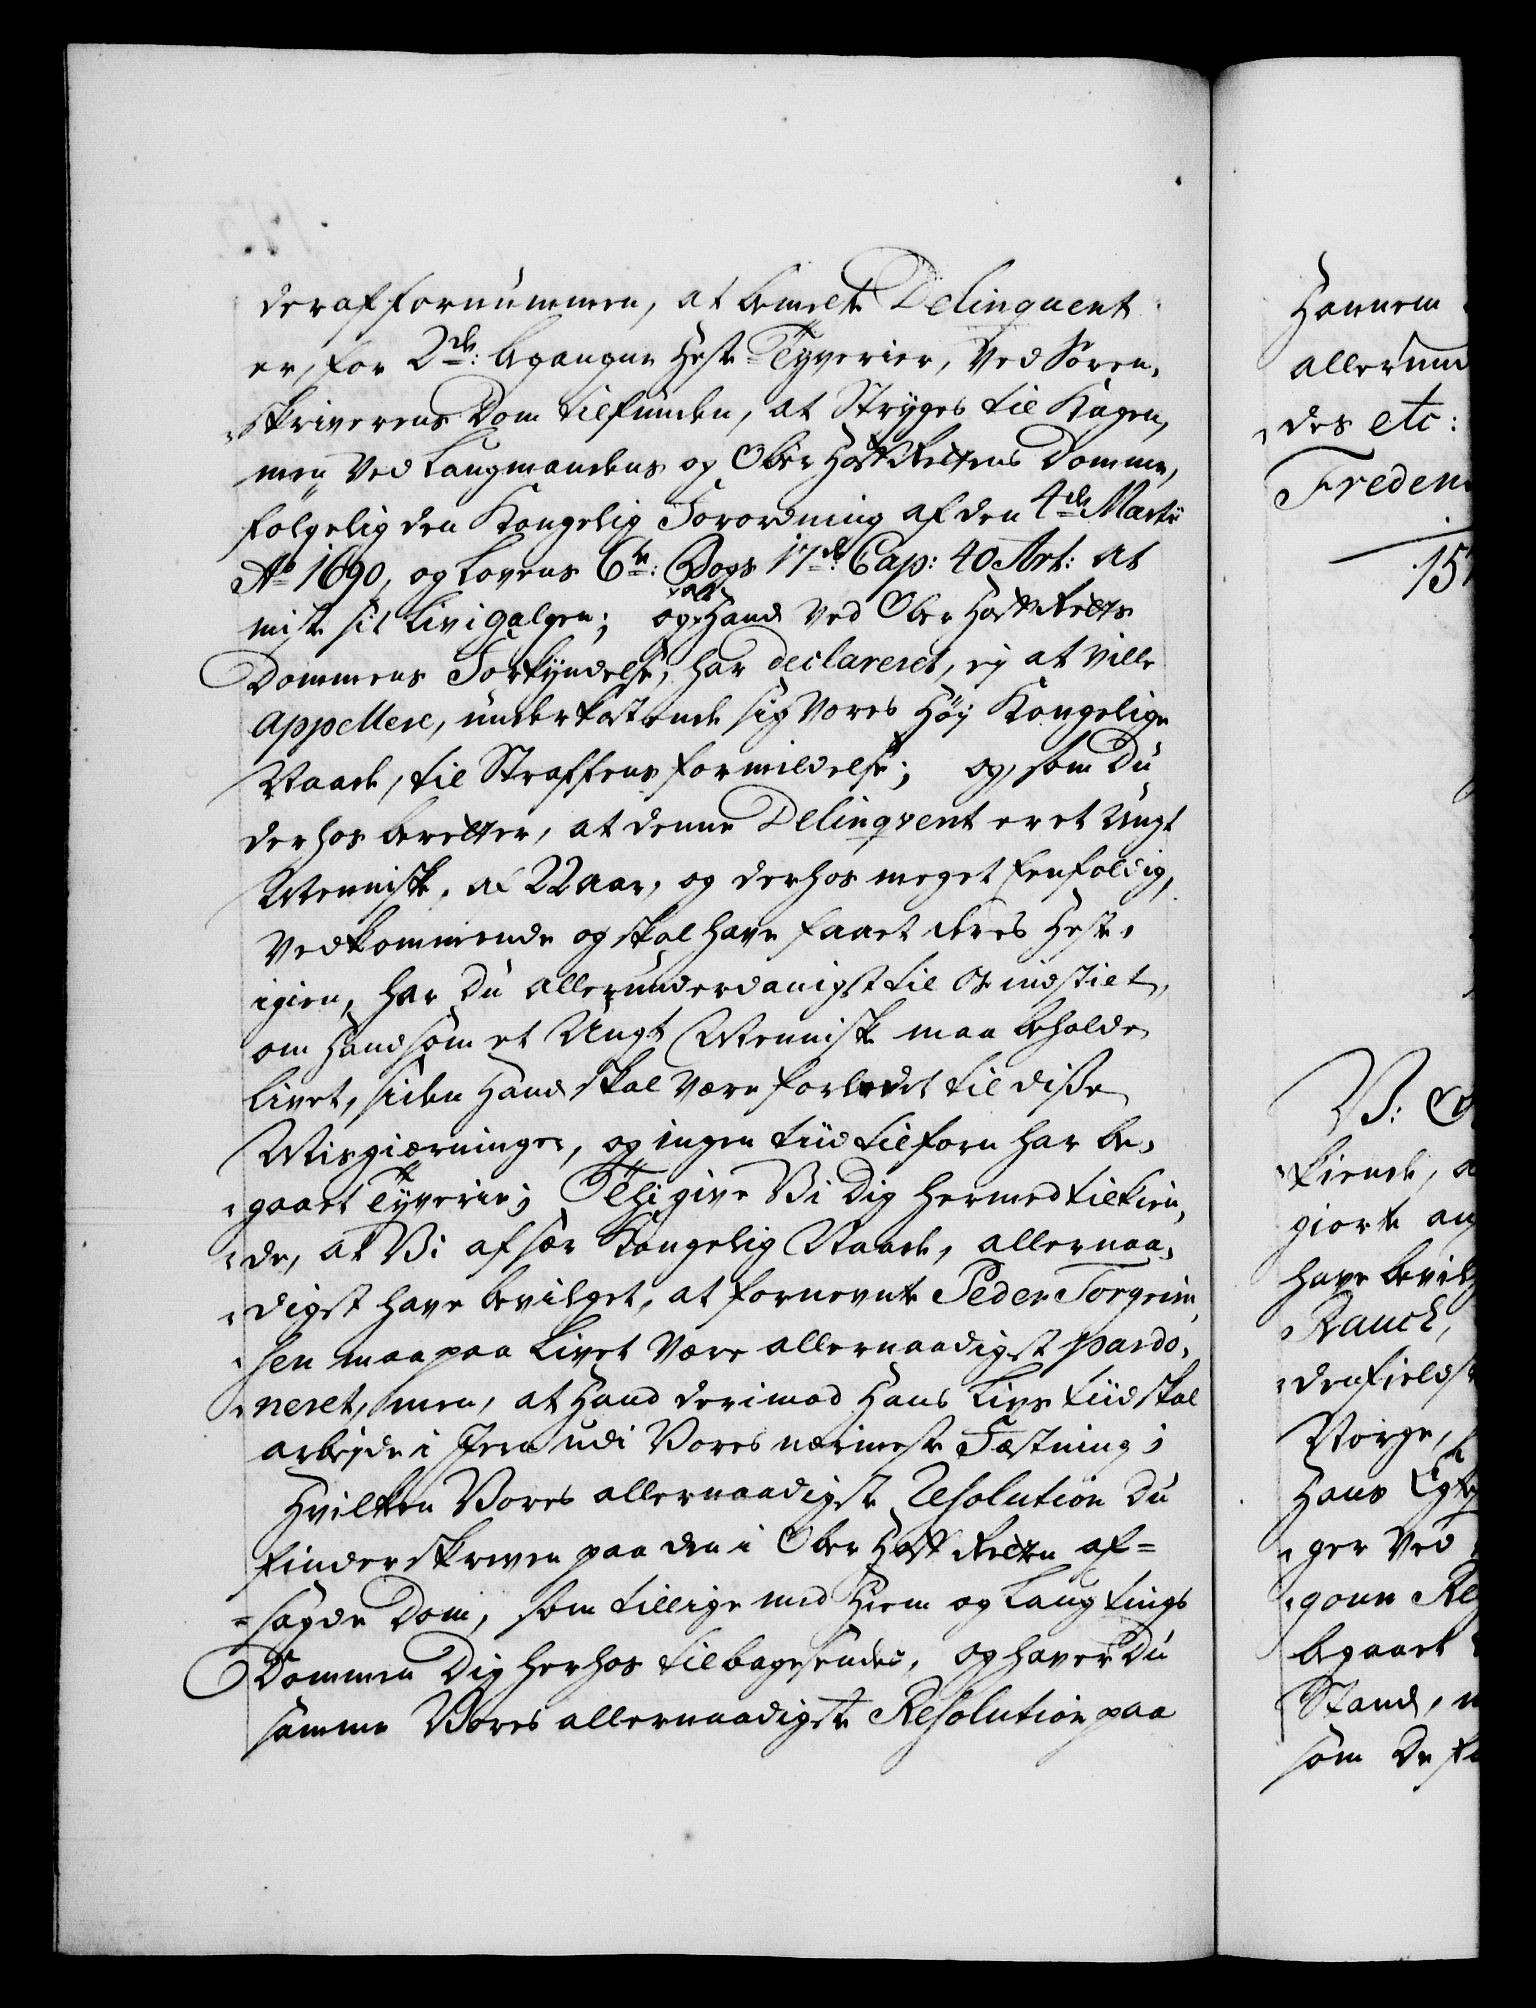 deraf fornummen, at bemelte Delinquent
er, for 2de: begangne Heste-Tyverier, ved Soren-
skriverens Dom tilfunden, at Stryges til Kagen,
men ved Laugmandens og Ober Hoff Rettens Domme,
følgelig den Kongelig Forordning af den 4de Martii
Ao 1690, og Lovens 6te: Bogs 17de: Cap: 40 Art: at
miste sit Liv i galgen; og Hand ved Ober Hoff Retts
Dommens Forkyndelse, har declareret, ej at ville
appellere, underkastende sig Vores Høy Kongelige
Naade, til Straffens formildelse; og, som Du
derhos beretter, at denne Delinqvent er et Ungt
Menniske, af 22 aar, og derhos meget Eenfoldig,
Vedkommende og skal have faaet deres Heste
igien, har Du allerunderdanigst til Os indstilet,
om Hand som et Ungt Menniske maa beholde
Livet, siden Hand skal være forledet til disse
Misgierninger, og ingen tiid tilforn har be-
gaaet Tyverie; Thi give Vi Dig hermed tilkien-
de, at Vi af sær Kongelig Naade, allernaa-
digst have bevilget, at fornevnte Peder Torgrim-
sen maa paa Livet være allernaadigst pardo-
neret, men, at Hand derimod Hans Livs tiid skal
arbejde i Jern udi Vores nærmeste Fæstning;
Hvilken Vores allernaadigste Resolution Du
finder skreven paa den i Ober Hoff Retten af-
sagde Dom, som tillige med Hiem og Laug tings
Dommen Dig herhos tilbagesendes, og haver Du
samme Vores allernaadigste Resolution paa
Hannem
allerund
des etc:
Freden
15
V: G
kiende, a
giorte an
have bevilg
Rauch,
denfields
Norge,
Hans
ger ved
begaaet
Stand,
som De